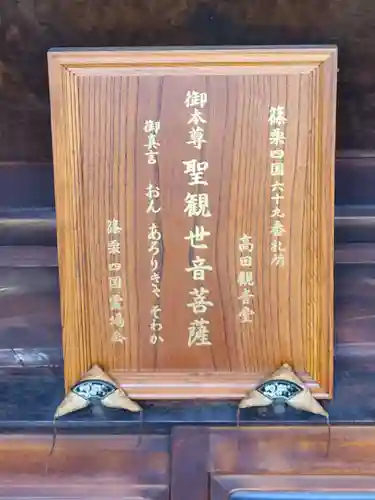 篠栗四国六十九番札所
高田観音堂
御本尊 聖観世音菩薩
御真言 おん あろりきゃ そわか
篠栗四国霊場会